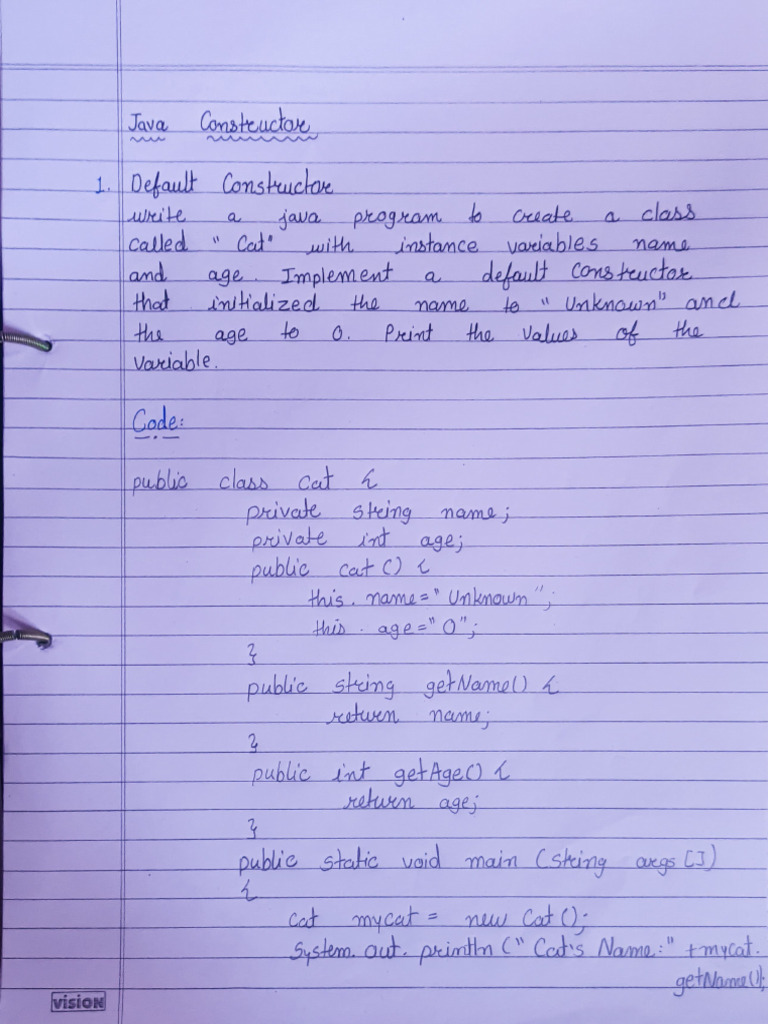 Java Constructor
1. Default Constructor
write a java program to create a class
called "Cat" with instance variables name
and age. Implement a default constructor
that initialized the name to "Unknown" and
the age to 0. Print the values of the
variable.
Code:
public class Cat {
private string name;
private int age;
public cat () {
this. name="Unknown";
this. age="0";
}
public string getName() {
return name;
}
public int getAge() {
return age;
}
public static void main (string args [])
{
Cat mycat = new Cat ();
System. out. println ("Cat's Name:" +mycat.
getName());
VISION